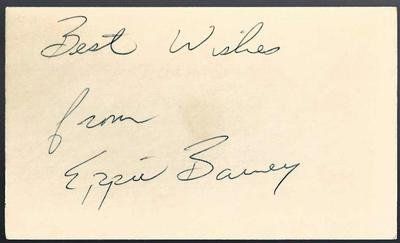 Best Wishes
from
Eppie Barney